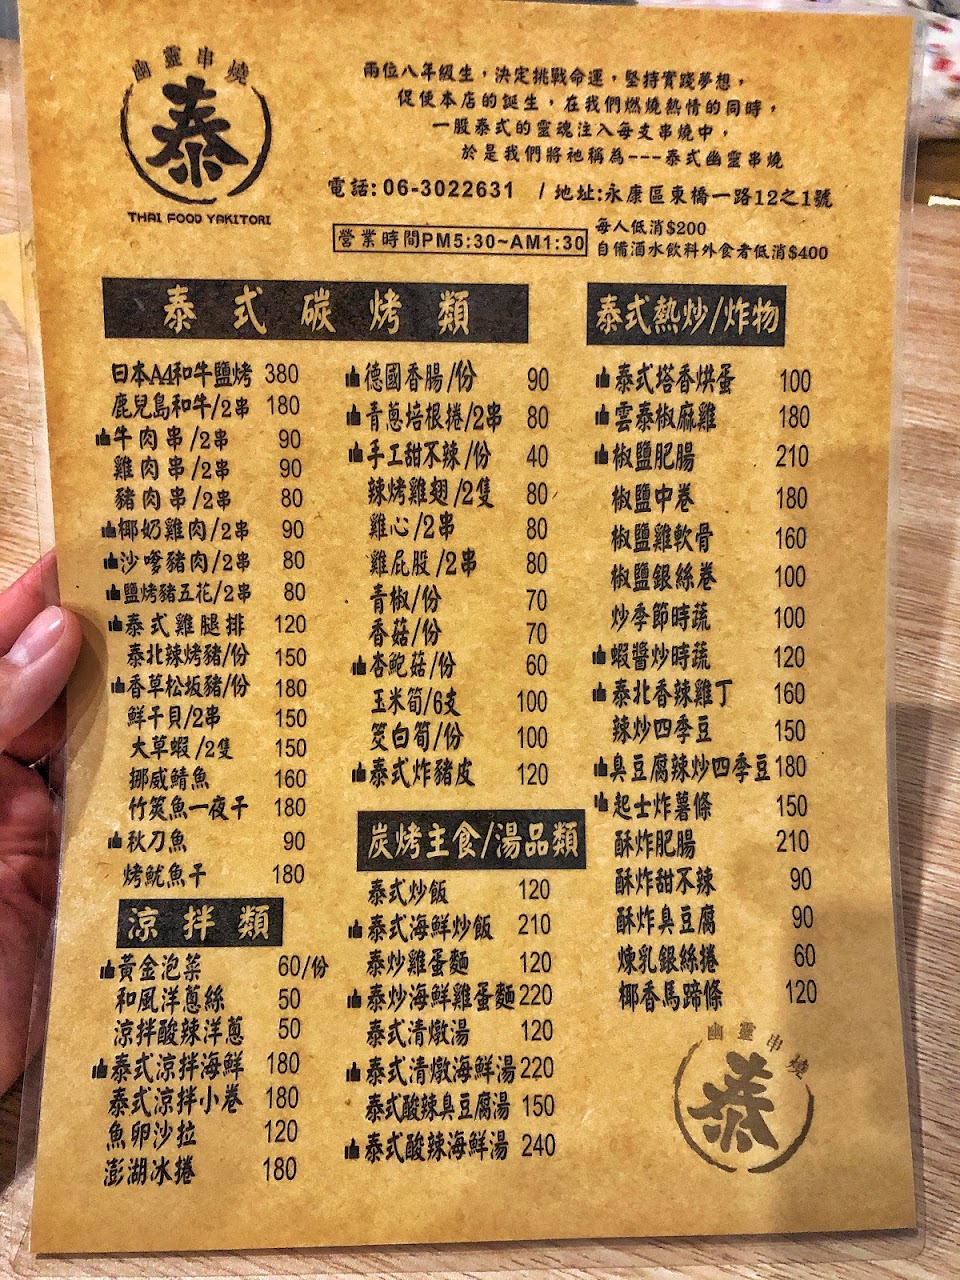 幽靈串燒
泰
THAI FOOD YAKITORI
兩位八年級生，決定挑戰命運，堅持實踐夢想，
促使本店的誕生，在我們燃燒熱情的同時，
一股泰式的靈魂注入每支串燒中，
於是我們將祂稱為---泰式幽靈串燒
電話:06-3022631 /地址:永康區東橋一路12之1號
營業時間PM5:30~AM1:30
每人低消$200
自備酒水飲料外食者低消$400
泰式碳烤類
日本A4和牛鹽烤 380
鹿兒島和牛/2串 180
牛肉串/2串 90
雞肉串/2串 90
豬肉串/2串 80
椰奶雞肉/2串 90
沙嗲豬肉/2串 80
鹽烤豬五花/2串 80
泰式雞腿排 120
泰北辣烤豬/份 150
香草松坂豬/份 180
鮮干貝/2串 150
大草蝦/2隻 150
挪威鯖魚 160
竹筴魚一夜干 180
秋刀魚 90
烤魷魚干 180
德國香腸/份 90
青蔥培根捲/2串 80
手工甜不辣/份 40
辣烤雞翅/2隻 80
雞心/2串 80
雞屁股/2串 80
青椒/份 70
香菇/份 70
杏鮑菇/份 60
玉米筍/6支 100
筊白筍/份 100
泰式炸豬皮 120
泰式熱炒/炸物
泰式塔香烘蛋 100
雲泰椒麻雞 180
椒鹽肥腸 210
椒鹽中卷 180
椒鹽雞軟骨 160
椒鹽銀絲卷 100
炒季節時蔬 100
蝦醬炒時蔬 120
泰北香辣雞丁 160
辣炒四季豆 150
臭豆腐辣炒四季豆 180
起士炸薯條 150
酥炸肥腸 210
酥炸甜不辣 90
酥炸臭豆腐 90
煉乳銀絲捲 60
椰香馬蹄條 120
涼拌類
黃金泡菜 60/份
和風洋蔥絲 50
涼拌酸辣洋蔥 50
泰式涼拌海鮮 180
泰式涼拌小卷 180
魚卵沙拉 120
澎湖冰捲 180
炭烤主食/湯品類
泰式炒飯 120
泰式海鮮炒飯 210
泰炒雞蛋麵 120
泰炒海鮮雞蛋麵 220
泰式清燉湯 120
泰式清燉海鮮湯 220
泰式酸辣臭豆腐湯 150
泰式酸辣海鮮湯 240
幽靈串燒
泰